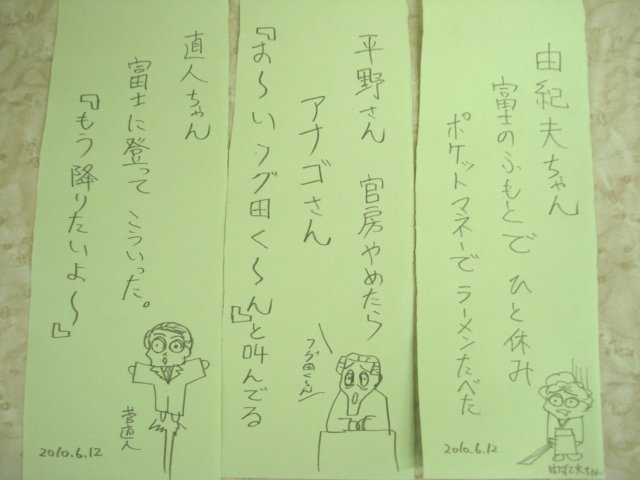 由紀夫ちゃん
富士のふもとで ひと休み
ポケットマネーで ラーメンたべた
2010.6.12
由紀夫ちゃん
平野さん 官房やめたら
アナゴさん
『お〜いフグ田く〜ん』と叫んでる
フグ田くん
直人ちゃん
富士に登って こういった。
『もう降りたいよ〜』
菅直人
2010.6.12